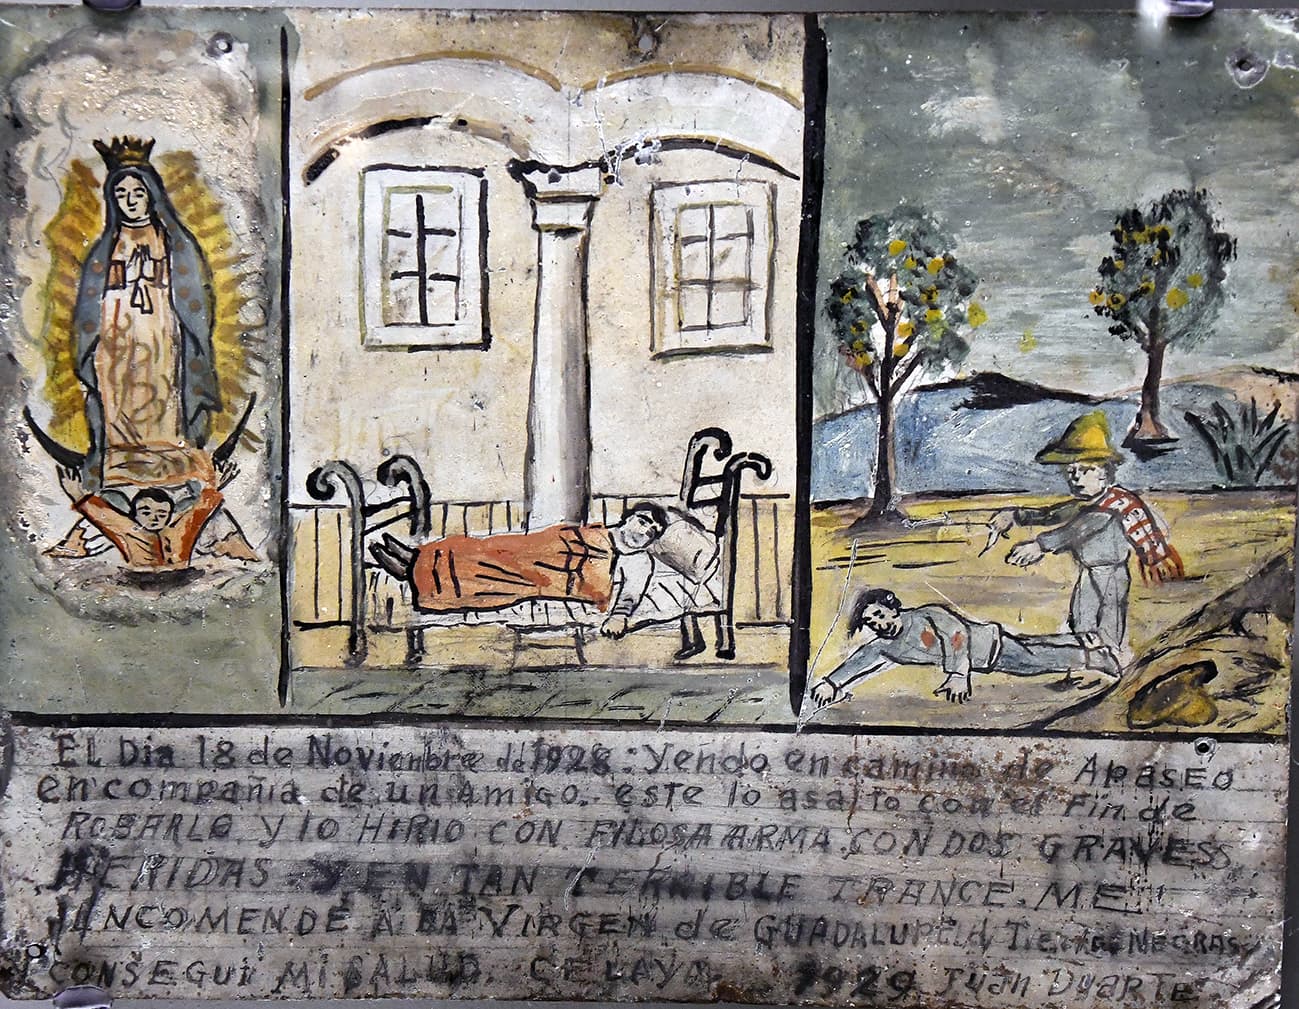 EL Dia 18 de Noviembre de 1928: Yendo en camino de APASEO
en compañia de un Amigo. este lo asalto con el Fin de
ROBARLO Y lo HIRIO CON FILOSA ARMA CON DOS GRAVESS
HERIDAS Y EN TAN TERRIBLE TRANCE. ME
ENCOMENDÉ A LA VIRGEN de GUADALUPE d, TierrasNEGRAS,
CONSEGUI MI SALUD. CELAYA. 1929 Juan DuARTE